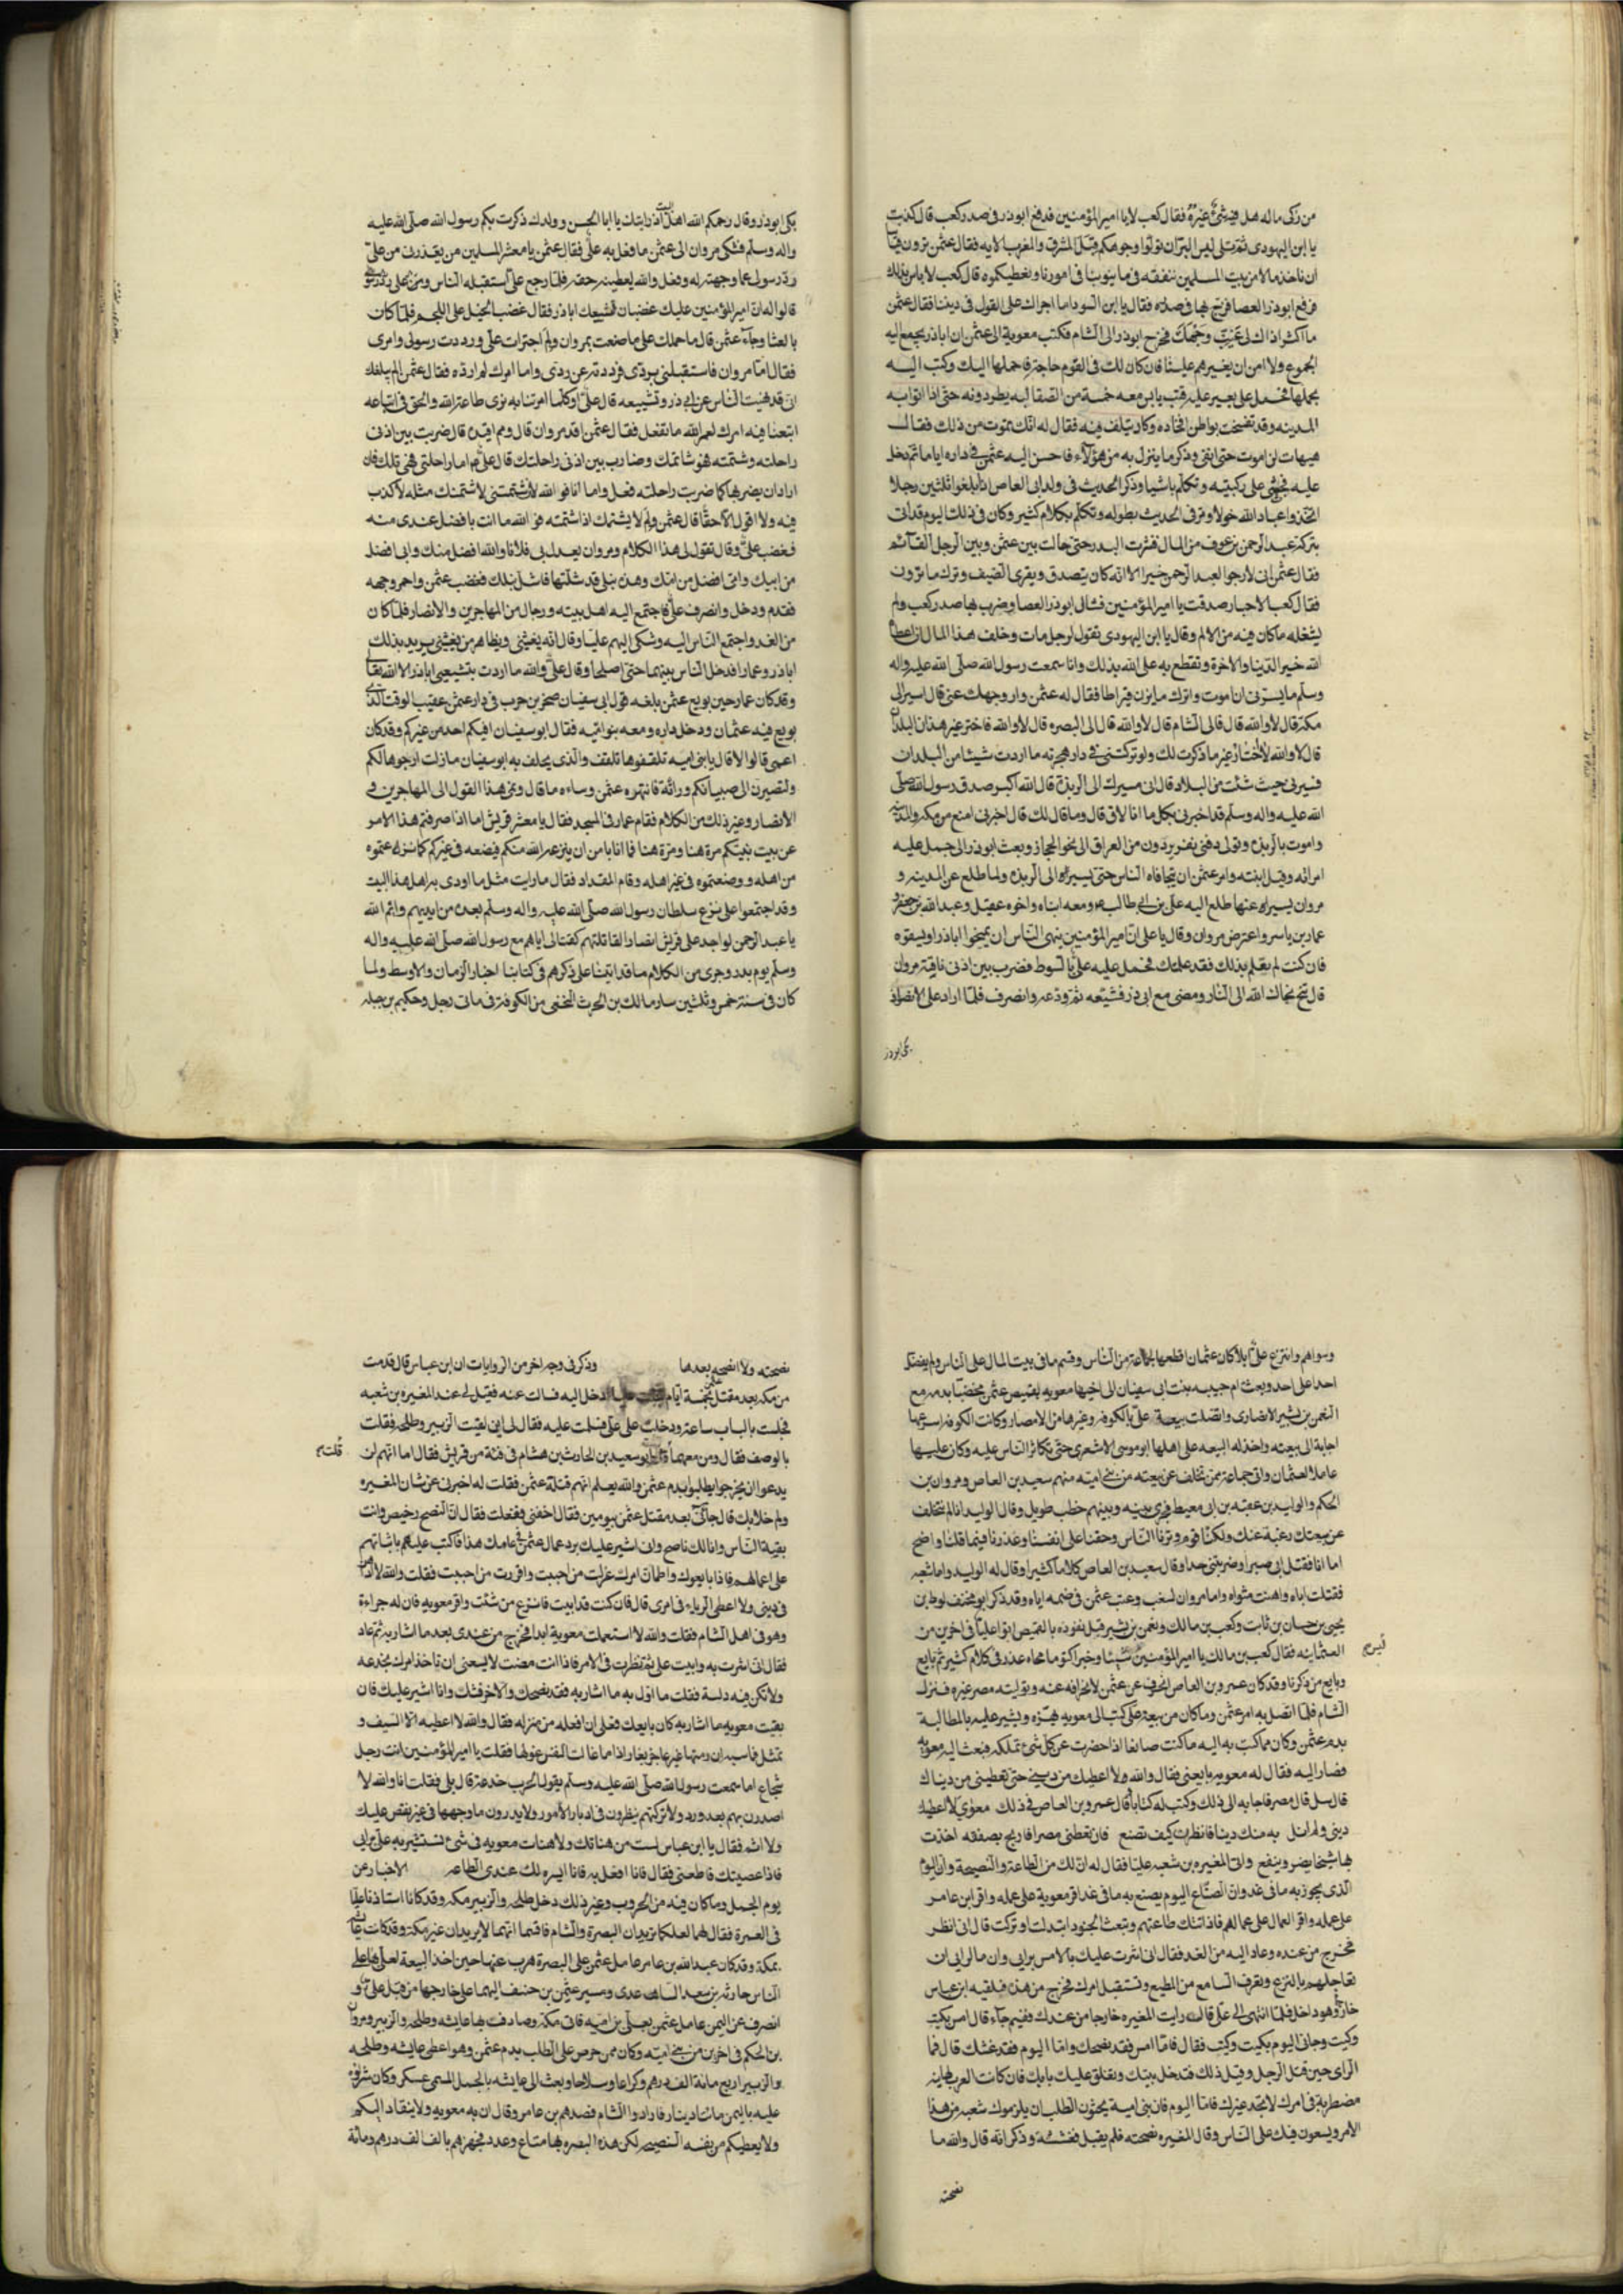 من زكى ماله هل فيه شئ غيره فقال كعب لا يا امير المؤمنين فدفع ابوذر فى صدر كعب قال كذبت
يا ابن اليهودى ثم تلى ليس البر ان تولوا وجوهكم قبل المشرق والمغرب الايه فقال عثمن ترون
ان ناخذ مالا من بيت المسلمين ننفقه فى ما ينوبنا فى امورنا ونعطيكموه قال كعب لا باس بذلك
فرفع ابوذر العصا فى صدره فقال يا ابن السودا ما اجراك على القول فى ديننا فقال عثمن
ما اكثر اذاك لى غيب وجهك فخرج ابوذر الى الشام فكتب معوية الى عثمن ان اباذر يجمع اليه
الجموع ولا امن ان يغيرهم علينا فان كان لك فى القوم حاجة فاحملها اليك وكتب اليه
بحملها فحمل على بعير عليه قتب يابس معه خمسة من الصقالبه يطردونه حتى اذا اتوا به
المدينه وقد تفسخت بواطن افخاذه وكاد يتلف فيه فقال له انك تموت من ذلك فقال
هيهات لن اموت حتى انفى وذكر ما ينزل به من هؤلاء فاحسن اليه عثمن فى داره اياما ثم دخل
عليه فجثى على ركبتيه وتكلم باشيا وذكر الحديث فى ولد ابى العاص اذا بلغوا ثلثين رجلا
اتخذوا عباد الله خولا ومر فى الحديث بطوله وتكلم بكلام كثير وكان فى ذلك اليوم قد اتى
بتركة عبد الرحمن بن عوف من المال فنثرت البدر حتى حالت بين عثمن وبين الرجل القائم
فقال عثمن انى لارجو لعبد الرحمن خيرا الا انه كان يتصدق ويقرى الضيف وترك ما ترون
فقال كعب الاحبار صدقت يا امير المؤمنين فشال ابوذر العصا وضرب بها صدر كعب ولم
يشغله ماكان فيه من الالم وقال يا ابن اليهودى تقول لرجل مات وخلف هذا المال ان اعطاه
الله خير الدنيا والاخرة وتقطع به على الله بذلك وانا سمعت رسول الله صلى الله عليه واله
وسلم ما يسرنى ان اموت واترك ما يزن قيراطا فقال له عثمن وار وجهك عنى قال اسير الى
مكة قال لا والله قال فالى الشام قال لا والله قال الى البصره قال لا والله فاختر غير هذان البلدان
قال لا والله لا اختار غير ما ذكرت لك ولو تركتنى فى دار هجرتى ما اردت شيئا من البلدان
فسيرنى حيث شئت من البلاد قال انى مسيرك الى الربذة قال الله اكبر صدق رسول الله صلى
الله عليه واله وسلم قد اخبرنى بكل ما انا لاق قال وما قال لك قال اخبرنى امنع من مكه والمدينه
واموت بالربذه ويتولى دفنى نفر يردون من العراق الى نحو الحجاز وبعث ابوذر الى جمل عليه
امراته وقيل ابنته وامر عثمن ان يتجافاه الناس حتى يسير الى الربذه ولما طلع عن المدينه و
مروان يسيراه عنها طلع اليه على بن ابى طالب ومعه ابناه واخوه عقيل وعبد الله بن جعفر و
عمار بن ياسر واعترض مروان وقال يا على ان امير المؤمنين ينهى الناس ان يمنحوا اباذر او يسقوه
فان كنت لم تعلم بذلك فقد علمتك فحمل عليه على بالسوط فضرب بين اذنى ناقة مروان
قال تنح نحاك الله الى النار ومضى مع ابى ذر فشيعه ثم ودعه وانصرف فلما اراد على الانصراف
بكى ابوذر
بكى ابوذر وقال رحمكم الله اهل البيت اذا رايتك يا ابا الحسن وولدك ذكرت بكم رسول الله صلى الله عليه
واله وسلم فشكى مروان الى عثمن ما فعل به على فقال عثمن يا معشر المسلمين من يعذرنى من على
رد رسولى عما وجهته له وفعل والله ليعطينه حقه فلما رجع على استقبله الناس
قالوا له ان امير المؤمنين عليك غضبان لتشييعك اباذر فقال غضب الخيل على اللجم فلما كان
بالعشا وجاء عثمن قال ما حملك على ما صنعت بمروان ولم اجترات على ورددت رسولى وامرى
فقال اما مروان فاستقبلنى بردى فرددته عن ردى واما امرك لم ارده فقال عثمن الم يبلغك
ان قد نهيت الناس عن ابى ذر وتشييعه قال على اوكلما امرتنا به نرى طاعة الله والحق فى اتباعه
اتبعنا فيه امرك لعمر الله ما نفعل فقال عثمن اقد مروان قال ومم اقيده قال ضربت بين اذنى
راحلته وشتمته فهو شاتمك وضارب بين اذنى راحلتك قال على اما راحلتى فهى تلك فان
اراد ان يضربها كما ضربت راحلته فعل واما انا فو الله لئن شتمتنى لاشتمنك مثله لا كذب
فيه ولا اقول الا حقا قال عثمن ولم لا يشتمك اذا شتمته فو الله ما انت بافضل عندى منه
فغضب على وقال تقول لى هذا الكلام ومروان يعدل بى فلانا والله افضل منك وابى افضل
من ابيك وامى افضل من امك وهذه نبلى قد نثلتها فانثل نبلك فغضب عثمن واحمر وجهه
فقدم ودخل وانصرف على فاجتمع اليه اهل بيته ورجال من المهاجرين والانصار فلما كان
من الغد واجتمع الناس اليه وشكى اليهم عليا وقال انه يغشنى ويظاهر من يغشنى يريد بذلك
اباذر وعمارا فدخل الناس بينهما حتى اصلحا وقال على والله ما اردت بتشييعى اباذر الا الله تعالى
وقد كان عمار حين بويع عثمن بلغه قول ابى سفيان صخر بن حرب فى دار عثمن عقيب الوقت الذى
بويع فيه عثمان ودخل داره ومعه بنو اميه فقال ابو سفيان افيكم احد من غيركم وقد كان
اعمى قالوا لا قال يا بنى اميه تلقفوها تلقف والذى يحلف به ابو سفيان ما زلت ارجوها لكم
ولتصيرن الى صبيانكم وراثة فانتهره عثمن وساءه ما قال ونمى هذا القول الى المهاجرين و
الانصار وغير ذلك من الكلام فقام عمار فى المسجد فقال يا معشر قريش اما اذا صرفتم هذا الامر
عن بيت نبيكم مرة هنا ومرة هنا فما انا بامن ان ينزعه الله منكم فيضعه فى غيركم كما نزعتموه
من اهله ووضعتموه فى غير اهله وقام المقداد فقال ما رايت مثل ما اوذى به اهل هذا البيت
وقد اجتمعوا على نزع سلطان رسول الله صلى الله عليه واله وسلم بعده من ايديهم وايم الله
يا عبد الرحمن لو اجد على قريش انصارا لقاتلتهم كقتالى اياهم مع رسول الله صلى الله عليه واله
وسلم يوم بدر وجرى من الكلام ما قد اتينا على ذكرهم فى كتابنا اخبار الزمان والاوسط ولما
كان فى سنة خمس وثلثين سار مالك بن الحرث النخعى من الكوفة فى مائتى رجل وحكيم بن جبله
وسواهم وانتزع على املاكا كان عثمان اقطعها لجماعة من الناس وقسم ما فى بيت المال على الناس ولم يفضل
احدا على احد وبعثت ام حبيبه بنت ابى سفيان الى اخيها معويه بقميص عثمن مخضبا بدمه مع
النعمن بن بشير الانصارى واتصلت بيعة على بالكوفه وغيرها من الامصار وكانت الكوفه اسرعها
اجابة الى بيعته واخذ له البيعه على اهلها ابو موسى الاشعرى حتى تكاثر الناس عليه وكان عليها
عاملا لعثمان واتى جماعة ممن تخلف عن بيعته من بنى اميه منهم سعيد بن العاص ومروان بن
الحكم والوليد بن عقبه بن ابى معيط فجرى بينه وبينهم خطب طويل وقال الوليد انا لم نتخلف
عن بيعتك رغبة عنك ولكنا قوم وترنا الناس وخفنا على انفسنا وعذرنا فيما قلنا واضح
اما انا فقتلت ابى صبرا وضربتنى حدا وقال سعيد بن العاص كلاما كثيرا وقال له الوليد واما شعيد
فقتلت اباه واهنت مثواه واما مروان لسغب وعبت عثمن فى ضمه اياه وقد ذكر ابو مخنف لوط بن
يحيى بن حسان بن ثابت وكعب بن مالك ونعمن بن بشير قبل نفوذه بالقميص اتوا عليا فى اخرين من
العثمانيه فقال كعب بن مالك يا امير المؤمنين وخير اكفو ما محاه عذر فى كلام كثير ثم بايع
قيس
وبايع من ذكرنا وقد كان عمرو بن العاص انحرف عن عثمن لانحرافه عنه وتوليته مصر غيره فنزل
الشام فلما اتصل به امر عثمن وما كان من بيعة على كتب الى معويه يهزه ويشير عليه بالمطالبة
بدم عثمن وكان مما كتب به اليه ما كنت صانعا اذا حضرت عن كل شئ تملكه فبعث اليه معويه
فصار اليه فقال له معويه بايعنى فقال والله ولا اعطيك من دينى حتى تعطينى من دنياك
قال سل قال مصر فاجابه الى ذلك وكتب له كتابا قال عمرو بن العاص فى ذلك معوى لا اعطيك
دينى ولم انل به منك دينا فانظرن كيف تصنع فان تعطنى مصرا فاربح بصفقه اخذت
بها شيخا يضر وينفع واتى المغيره بن شعبه عليا فقال له ان لك من الطاعة والنصيحة وان اليوم
الذى يحوز به ما فى غد وان الضياع اليوم يضيع به ما فى غد اقر معوية على عمله واقر ابن عامر
على عمله واقر العمال على عمالهم فاذا اتتك طاعتهم وبيعة الجنود ابتدلت او تركت قال انى انظر
فخرج من عنده وعاد اليه من الغد فقال انى اشرت عليك بالامس براى وان مالراى ان
تعاجلهم بالنزع وتعرف السامع من المطيع وتستقبل امرك فخرج من هذه فلقيه ابن عباس
خارجا وهو داخل فلما انتهى الى على قال رايت المغيره خارجا من عندك ففيم جاء قال امس بكيت
وكيت وجانى اليوم بكيت وكيت فقال فاما امس فقد نصحك واما اليوم فقد غشك قال فما
الراى حين قتل الرجل وقبل ذلك فتدخل بيتك وتغلق عليك بابك فان كانت العرب جاينه
مضطربة فى امرك لا تجد غيرك فاما اليوم فان بنى امية يحثون الطلب بان يلزموك شعبه من هذا
الامر ويسعون فيك على الناس وقال المغيره نصحته فلم يقبل فغششته وذكر انه قال والله ما
نصحته
نصحته ولا انصحه بعدها وذكر فى وجه اخر من الروايات ان ابن عباس قال قدمت
من مكه بعد مقتل عثمن بخمسة ايام فجئت عليا ادخل اليه فسالت عنه فقيل لى عند المغيره بن شعبه
فجلست بالباب ساعة ودخلت على على فسلمت عليه فقال لى اين لقيت الزبير وطلحه فقلت
بالوصف فقال ومن معهما قلت ابو سعيد بن الحارث بن هشام فى فئة من قريش فقال اما انهم لن
قلت
يدعوا ان يخرجوا يطلبوا بدم عثمن والله يعلم انهم قتلة عثمن فقلت له اخبرنى عن شان المغيره
ولم خلا بك قال جانى بعد مقتل عثمن بيومين فقال اخلنى ففعلت فقال ان النصح رخيص وانت
بقية الناس وانا لك ناصح وان اشير عليك برد عمال عثمن فى عامك هذا فاكتب عليهم باثباتهم
على اعمالهم فاذا بايعوك واطمان امرك عزلت من احببت واقررت من احببت فقلت والله لا ادهن
فى دينى ولا اعطى الرياء فى امرى قال فان كنت قد ابيت فانزع من شئت واقر معويه فان له جراءة
وهو فى اهل الشام فقلت والله لا استعملت معوية ابدا فخرج من عندى بعد ما اشار به ثم عاد
فقال انى اشرت به وابيت على ثم نظرت فى الامر فاذا انت مضت لا يسعنى ان تاخذ امرك بخدعه
ولا تكن فيه دلسة فقلت ما اول به ما اشار به فقد نصحك والاخر غشك وانا اشير عليك فان
بقيت معويه ما اشار به كان بايعك فعلى ان افعله من منزله فقال والله لا اعطيه الا السيف و
تمثل فما ميتة ان متها غير عاجز بعار اذا ما غالت النفس غولها فقلت يا امير المؤمنين انت رجل
شجاع اما سمعت رسول الله صلى الله عليه وسلم يقول الحرب خدعة قال بلى فقلت انا والله لا
اصدرن بهم بعد ورد ولا تركتهم ينظرون فى ادبار الامور ولا يدرون ما وجهها فى غير نقص عليك
ولا اثم فقال يا ابن عباس لست من هناتك ولا هنات معويه فى شئ تستشير به على برايى
فاذا عصيتك فاطعنى فقال فانا افعل به فانا ايسره لك عندى الطاعه الاخبار عن
يوم الجمل وما كان فيه من الحروب وغير ذلك دخل طلحه والزبير مكه وقد كانا استاذنا عليا
فى العمرة فقال لهما لعلكما تريدان البصرة والشام فاقسما انهما لا يريدان غير مكة وقد كانت عائشه
بمكة وقد كان عبد الله بن عامر عامل عثمن على البصرة هرب عنها حين اخذ البيعة لعلى بها على
الناس حارثه بن سعد السامعدى ومسير عثمن بن حنيف اليهما على خارجها من قبل على و
انصرف عن اليمن عامل عثمن يعلى بن اميه فاتى مكة وصادف بها عايشه وطلحه والزبير ومروان
بن الحكم فى اخرين من بنى اميه وكان ممن حرص على الطلب بدم عثمن وهو اعطى عايشه وطلحه
والزبير اربع مائة الف درهم وكراعا وسلاحا وبعث الى عايشه بالجمل المسمى عسكر وكان شراؤه
عليه باليمن مائتا دينار فارادوا الشام فصدهم بن عامر وقال ان به معويه ولا ينقاد اليكم
ولا يعطيكم من نفسه النصيحه لكن هذه البصره بها متاع وعدد فجهزهم بالف الف درهم ومائة